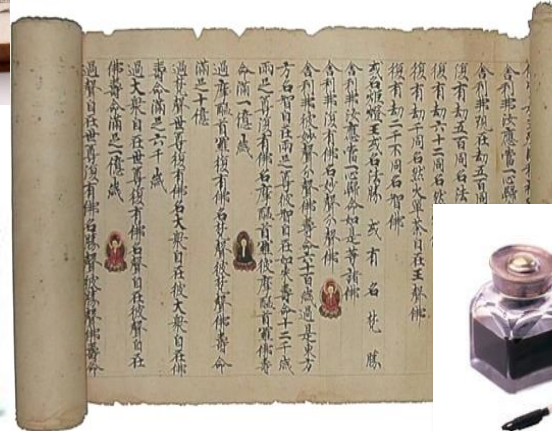 舍利弗汝應當一心歸
舍利弗現在劫五百同
復有劫五百同名法
復有劫六十二同名然
復有劫千同名然火單荼自在王聲佛
復有劫二千下同名智佛
或名燈王或名法勝 或有名梵勝
舍利弗汝應當一心歸命如是等諸佛
舍利弗復有佛名妙聲分聲佛
舍利弗彼妙聲分聲佛壽命六十百歲過是東方
方名智自在兩足尊彼智自在如來壽命十二千歲
兩足尊復有佛名摩醯首羅彼摩醯首羅佛壽
命滿一億歲
過摩醯首羅復有佛名梵聲彼梵聲佛壽命
滿足十億
過梵聲世尊復有佛名大衆自在彼大衆自在佛
壽命滿足六千歲
過大衆自在世尊復有佛名聲自在彼聲自在
佛壽命滿足一億歲
過聲自在世尊復有佛名勝聲彼勝聲佛壽命